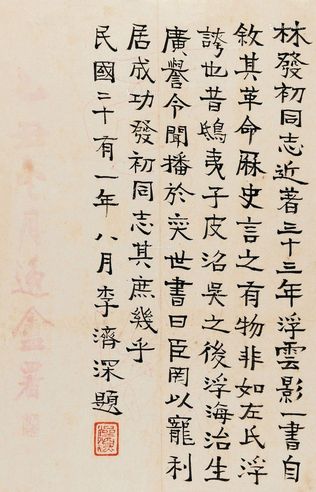 林發初同志近著三十三年浮雲影一書自
敘其革命厤史言之有物非如左氏浮
誇也昔鴟夷子皮沼吳之後浮海治生
廣譽令聞播於奕世書曰臣罔以寵利
居成功發初同志其庶幾乎
民國二十有一年八月李濟深題